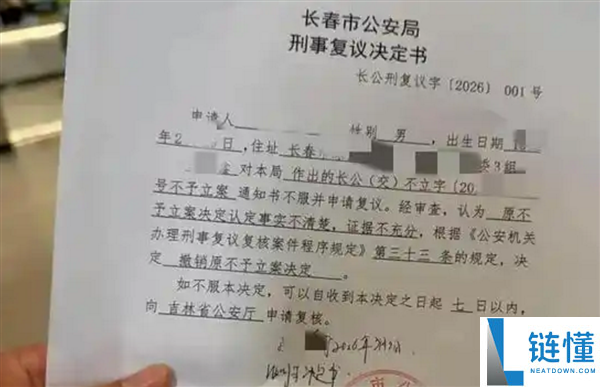 长春市公安局
刑事复议决定书
长公刑复议字〔2026〕001号
申请人 性别 男，出生日期
年2 日，住址 长春
委3组
对本局 作出的长公（交）不立字〔20
号不予立案 通知书不服并申请复议。经审查，认为 原不
予立案决定认定事实不清楚，证据不充分，根据《公安机关
办理刑事复议复核案件程序规定》第三十三条的规定，决
定 撤销原不予立案决定 。
如不服本决定，可以自收到本决定之日起 七 日以内，
向 吉林省公安厅 申请复核。
2026年
决定书
链懂
NEATDOWN.COM